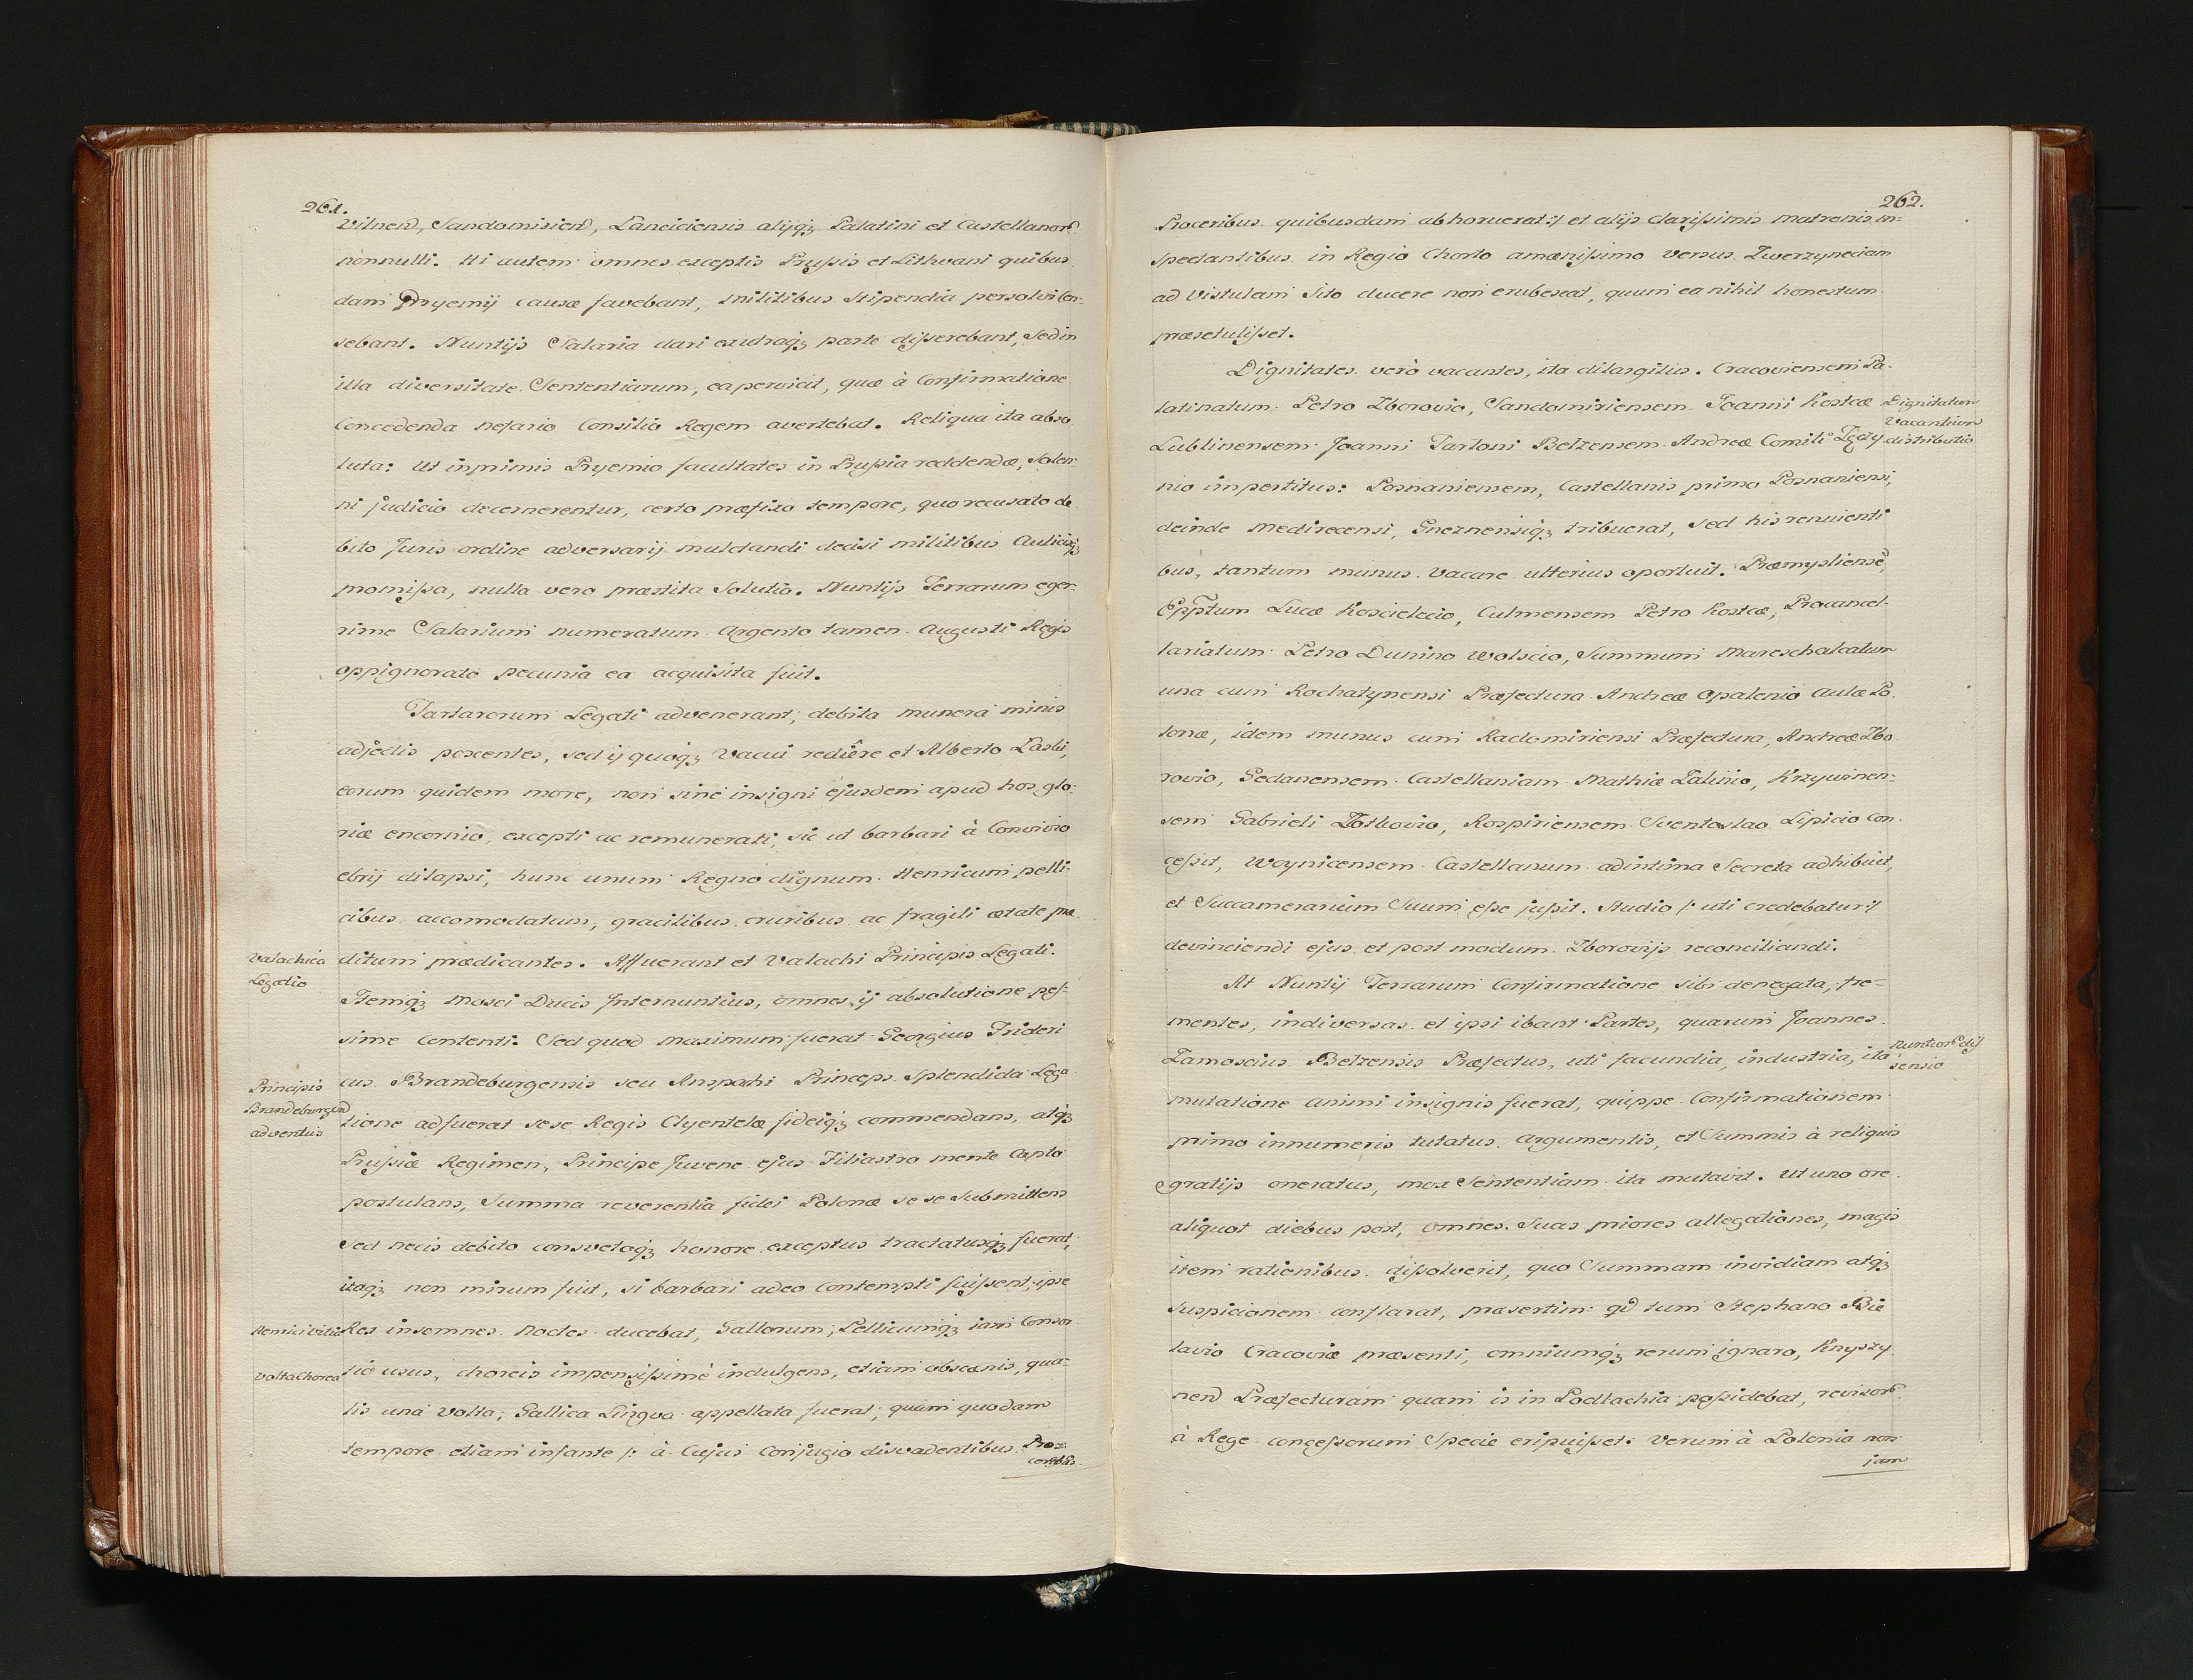 261.
Vilnen̄, Sandomirien̄, Lanciciensis alijq꜄ Palatini et Castellanor̄
nonnulli. Hi autem omnes exceptis Prussis et Lithvani quibus
dam Pryemij causæ favebant, militibus stipendia persolvi Cen-
sebant. Nuntijs Salaria dari exutraq꜄ parte disserebant, Sed in
illa diversitate Sententiarum, ea pervicit, quæ à Confirmatione
Concedenda nefario Consilio Regem avertebat. Reliqua ita abso
luta: Ut inprimis Pryemio facultates in Prussia reddendæ, Solen-
ni judicio decernerentur, certo præfixo tempore, quo recusato de
bito Juris ordine adversarij muldandi decisi militibus Aulicisq꜄
promissa, nulla vero præstita Solutio. Nuntijs Terrarum eger-
rime Salarium numeratum Argento tamen Augusti Regis
oppignorato pecunia ea acquisita fuit.
Tartarorum Legati advenerant, debita munera minis
adjectis poscentes, sed ij quoq꜄ Vacui rediêre et Alberto Laski,
eorum quidem more, non sine insigni ejusdem apud hos glo-
riæ encomio, excepti ac remunerati, sic ut barbari à Convivio
ebrij dilapsi, hunc unum Regno dignum Henricum pelli-
cibus accomodatum, gracilibus cruribus ac fragili ætate præ-
Valachica
Legatio
ditum prædicantes. Affuerant et Valachi Principis Legati.
Itemq꜄ Mosci Ducis Internuntius, omnes ij absolutione pes-
sime Contenti. Sed quod maximum fuerat Georgius Frideri
Principis
Brandeburgen̄
adventus
cus Brandeburgensis seu Anspachi Princeps Splendida Lega
tione adfuerat sese Regis Clyentelæ fideiq꜄ commendans, atq꜄
Prussiæ Regimen, Principe Juvene ejus Filiastro mente Capto
postulans, Summa reverentia fidei Polonæ se se Submittens
Sed necis debito consvetoq꜄ honore exceptus tractatusq꜄ fuerat,
itaq꜄ non mirum fuit, si barbari adeo Contempti fuissent, ipse
Henrici vitia
Rex insomnes noctes ducebat, Gallorum, Pellicumq꜄ iam Consor-
Volta Chorea
tio usus, choreis impensissime indulgens, etiam obscænis, qua-
lis una Volta, Gallica Lingva appellata fuerat, quam quodam
tempore etiam infante /: à Cujus Conjugio disvadentibus Pro-
ceribus
262.
Proceribus quibusdam abhoruerat :/ et alijs clarissimis matronis in-
spectantibus in Regio Chorto amænissimo versus Zwerzyneciam
ad Vistulam Sito ducere non erubescat, quum ea nihil honestum
præsetulisset.
Dignitates verò vacantes, ita dilargitus. Cracoviensem Pa-
latinatum Petro Zborovio, Sandomiriensem Joanni Kostcæ
Dignitatum
Vacantium
distributio
Lublinensem Joanni Tarloni Belzensem Andreæ Comiti Tęczy
nio impertitus: Posnaniensem, Castellanis primo Posnaniensi,
deinde Medirecensi, Gneznensiq꜄ tribuerat, sed his renuienti
bus, tantum munus Vacare ulterius oportuit. Præmysliensē,
Epp̄tum Lucæ Koscielecio, Culmensem Petro Kostcæ, Procancel-
lariatum Petro Dunino Wolscio, Summum Mareschalcatum
una cum Rochatynensi Præfectura Andreæ Opalenio Aulæ Po-
lonæ, idem munus cum Radomiriensi Præfectura, Andreæ Zbo
rovio, Gedanensem Castellaniam Mathiæ Zalinio, Krzywinen-
sem Gabrieli Zolkovio, Rospiriensem Sventoslao Lipicio Con-
cessit, Woynicensem Castellanum ad intima Secreta adhibuit,
et Succamerarium Suum esse jussit. Studio /: uti credebatur :/
devinciendi ejus et post modum Zborovijs reconciliandi.
At Nuntij Terrarum Confirmatione sibi denegata, fre-
mentes, indiversas et ipsi ibant Partes, quarum Joannes
Nuntior̄ dis
sensio
Zamoscius Belzensis Præfectus, uti facundia, industria, ita
mutatione animi insignis fuerat, quippe Confirmationem
primo innumeris tutatus argumentis, et Summis à reliquis
gratijs oneratus, mox Sententiam ita mutavit. Ut uno ore
aliquot diebus post, omnes Suas priores allegationes, magis
item rationibus dissolverit, quo Summam invidiam atq꜄
suspicionem conflarat, præsertim qđ tum Stephano Bie
lavio Cracoviæ præsenti, omniumq꜄ rerum ignaro, Knyszy
nen̄ Præfecturam quam is in Podlachia possidebat, revisor̄
à Rege concessorum Specie eripuisset. Verum à Polonia non
jam